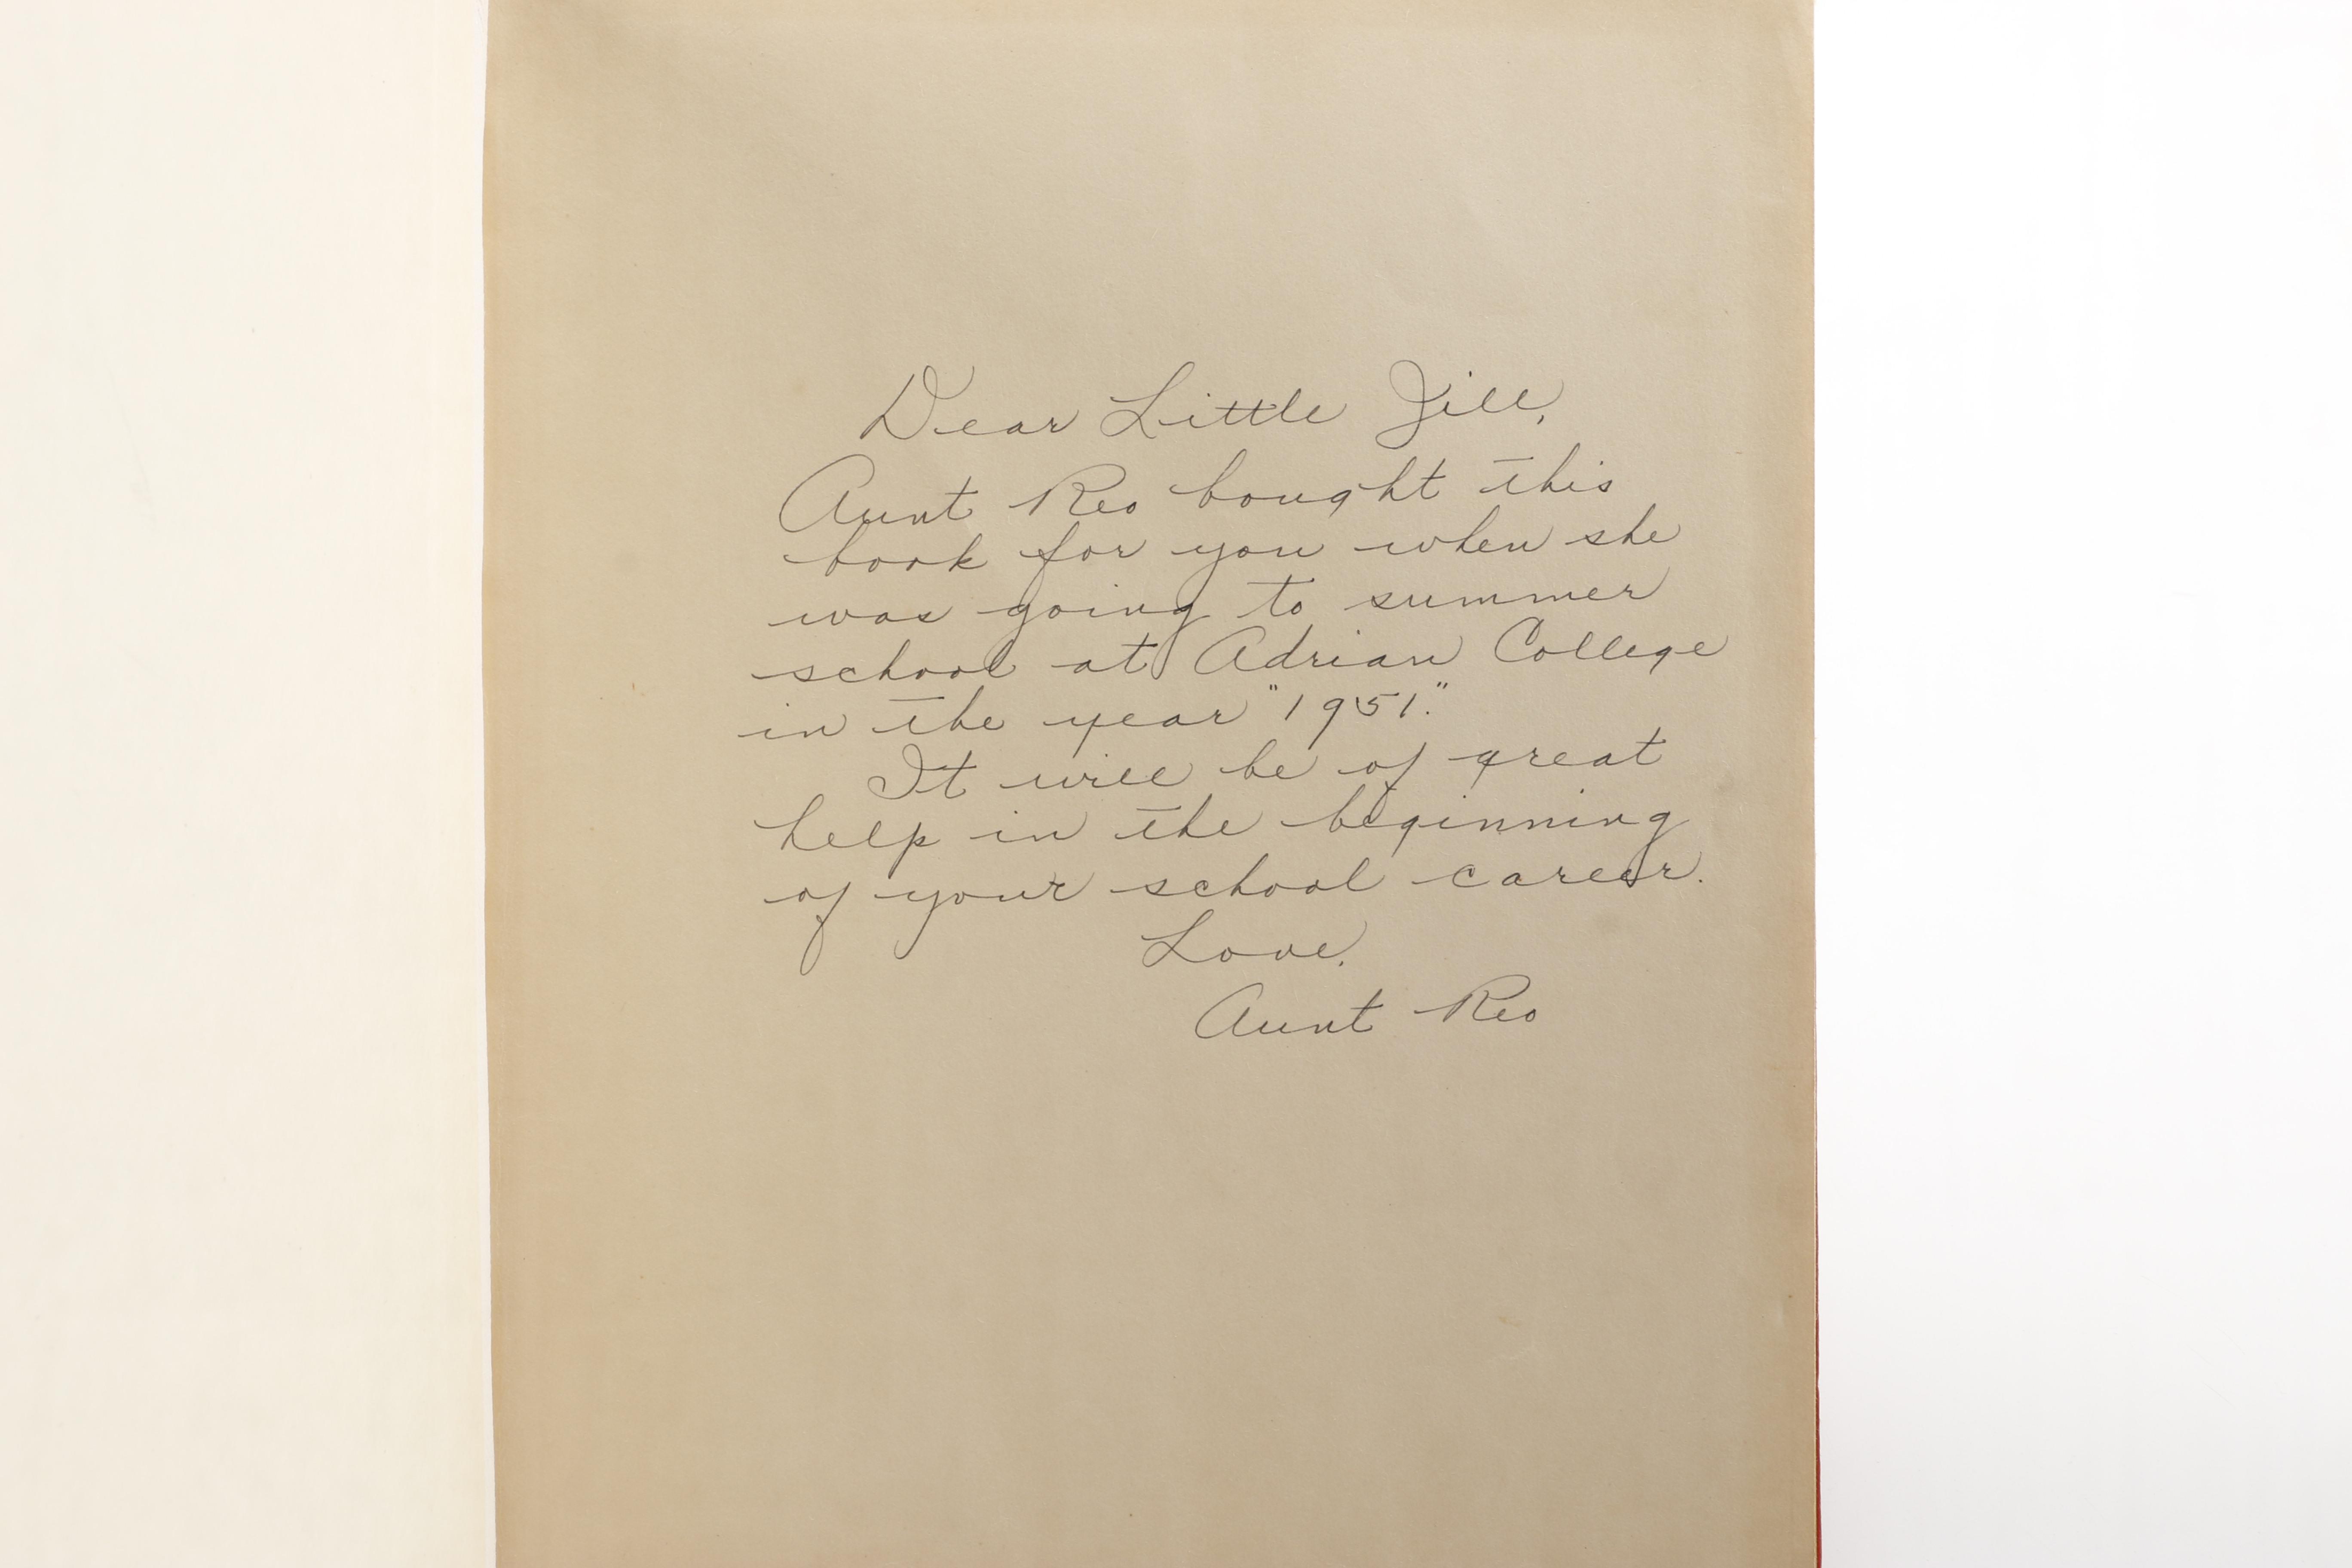 Dear Little Jill,
Aunt Reo bought this
book for you when she
was going to summer
school at Adrian College
in the year "1951."
It will be of great
help in the beginning
of your school career.
Love,
Aunt Reo